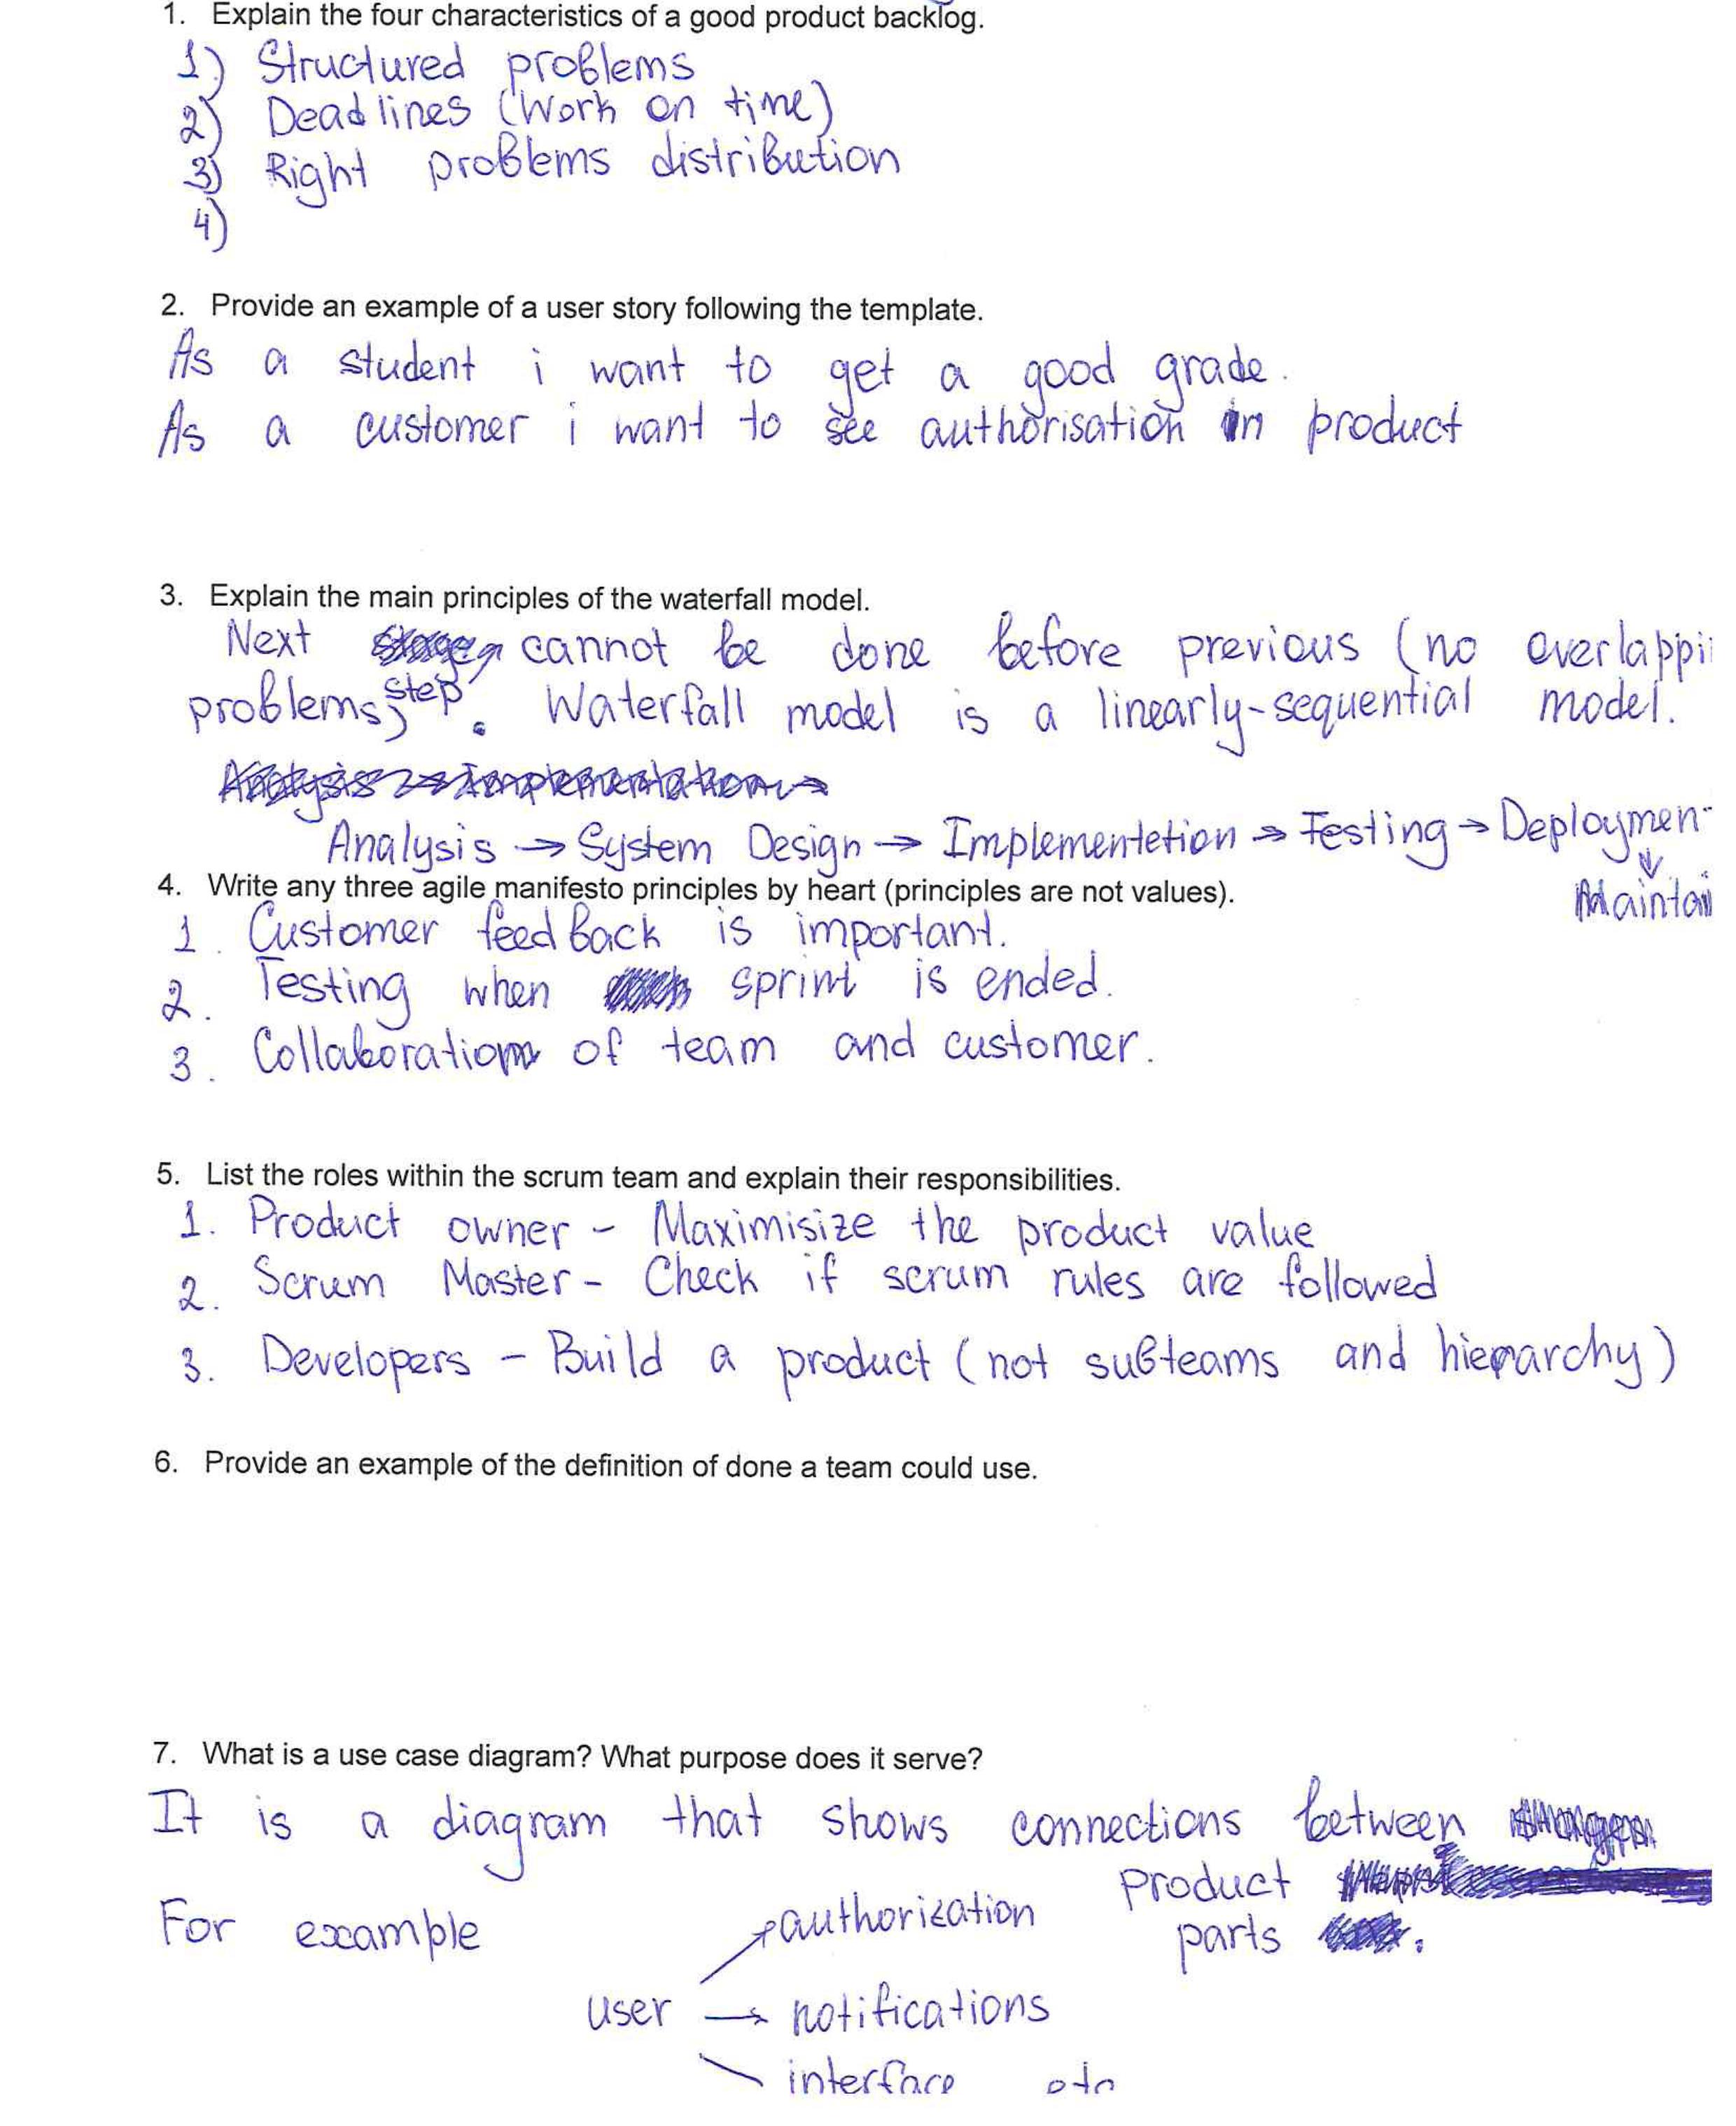 1. Explain the four characteristics of a good product backlog.
1) Structured problems
2) Deadlines (Work on time)
3) Right problems distribution
4)
2. Provide an example of a user story following the template.
As a student i want to get a good grade.
As a customer i want to see authorisation in product
3. Explain the main principles of the waterfall model.
Next step cannot be done before previous (no overlappi
problems). Waterfall model is a linearly-sequential model.
Analysis → Implementation →
Analysis → System Design → Implementetion → Testing → Deploymen
↓
Maintai
4. Write any three agile manifesto principles by heart (principles are not values).
1. Customer feedback is important.
2. Testing when sprint is ended.
3. Collaboration of team and customer.
5. List the roles within the scrum team and explain their responsibilities.
1. Product owner - Maximisize the product value
2. Scrum Master - Check if scrum rules are followed
3. Developers - Build a product (not subteams and hierarchy)
6. Provide an example of the definition of done a team could use.
7. What is a use case diagram? What purpose does it serve?
It is a diagram that shows connections between
product
parts.
For example
authorization
user → notifications
interface etc